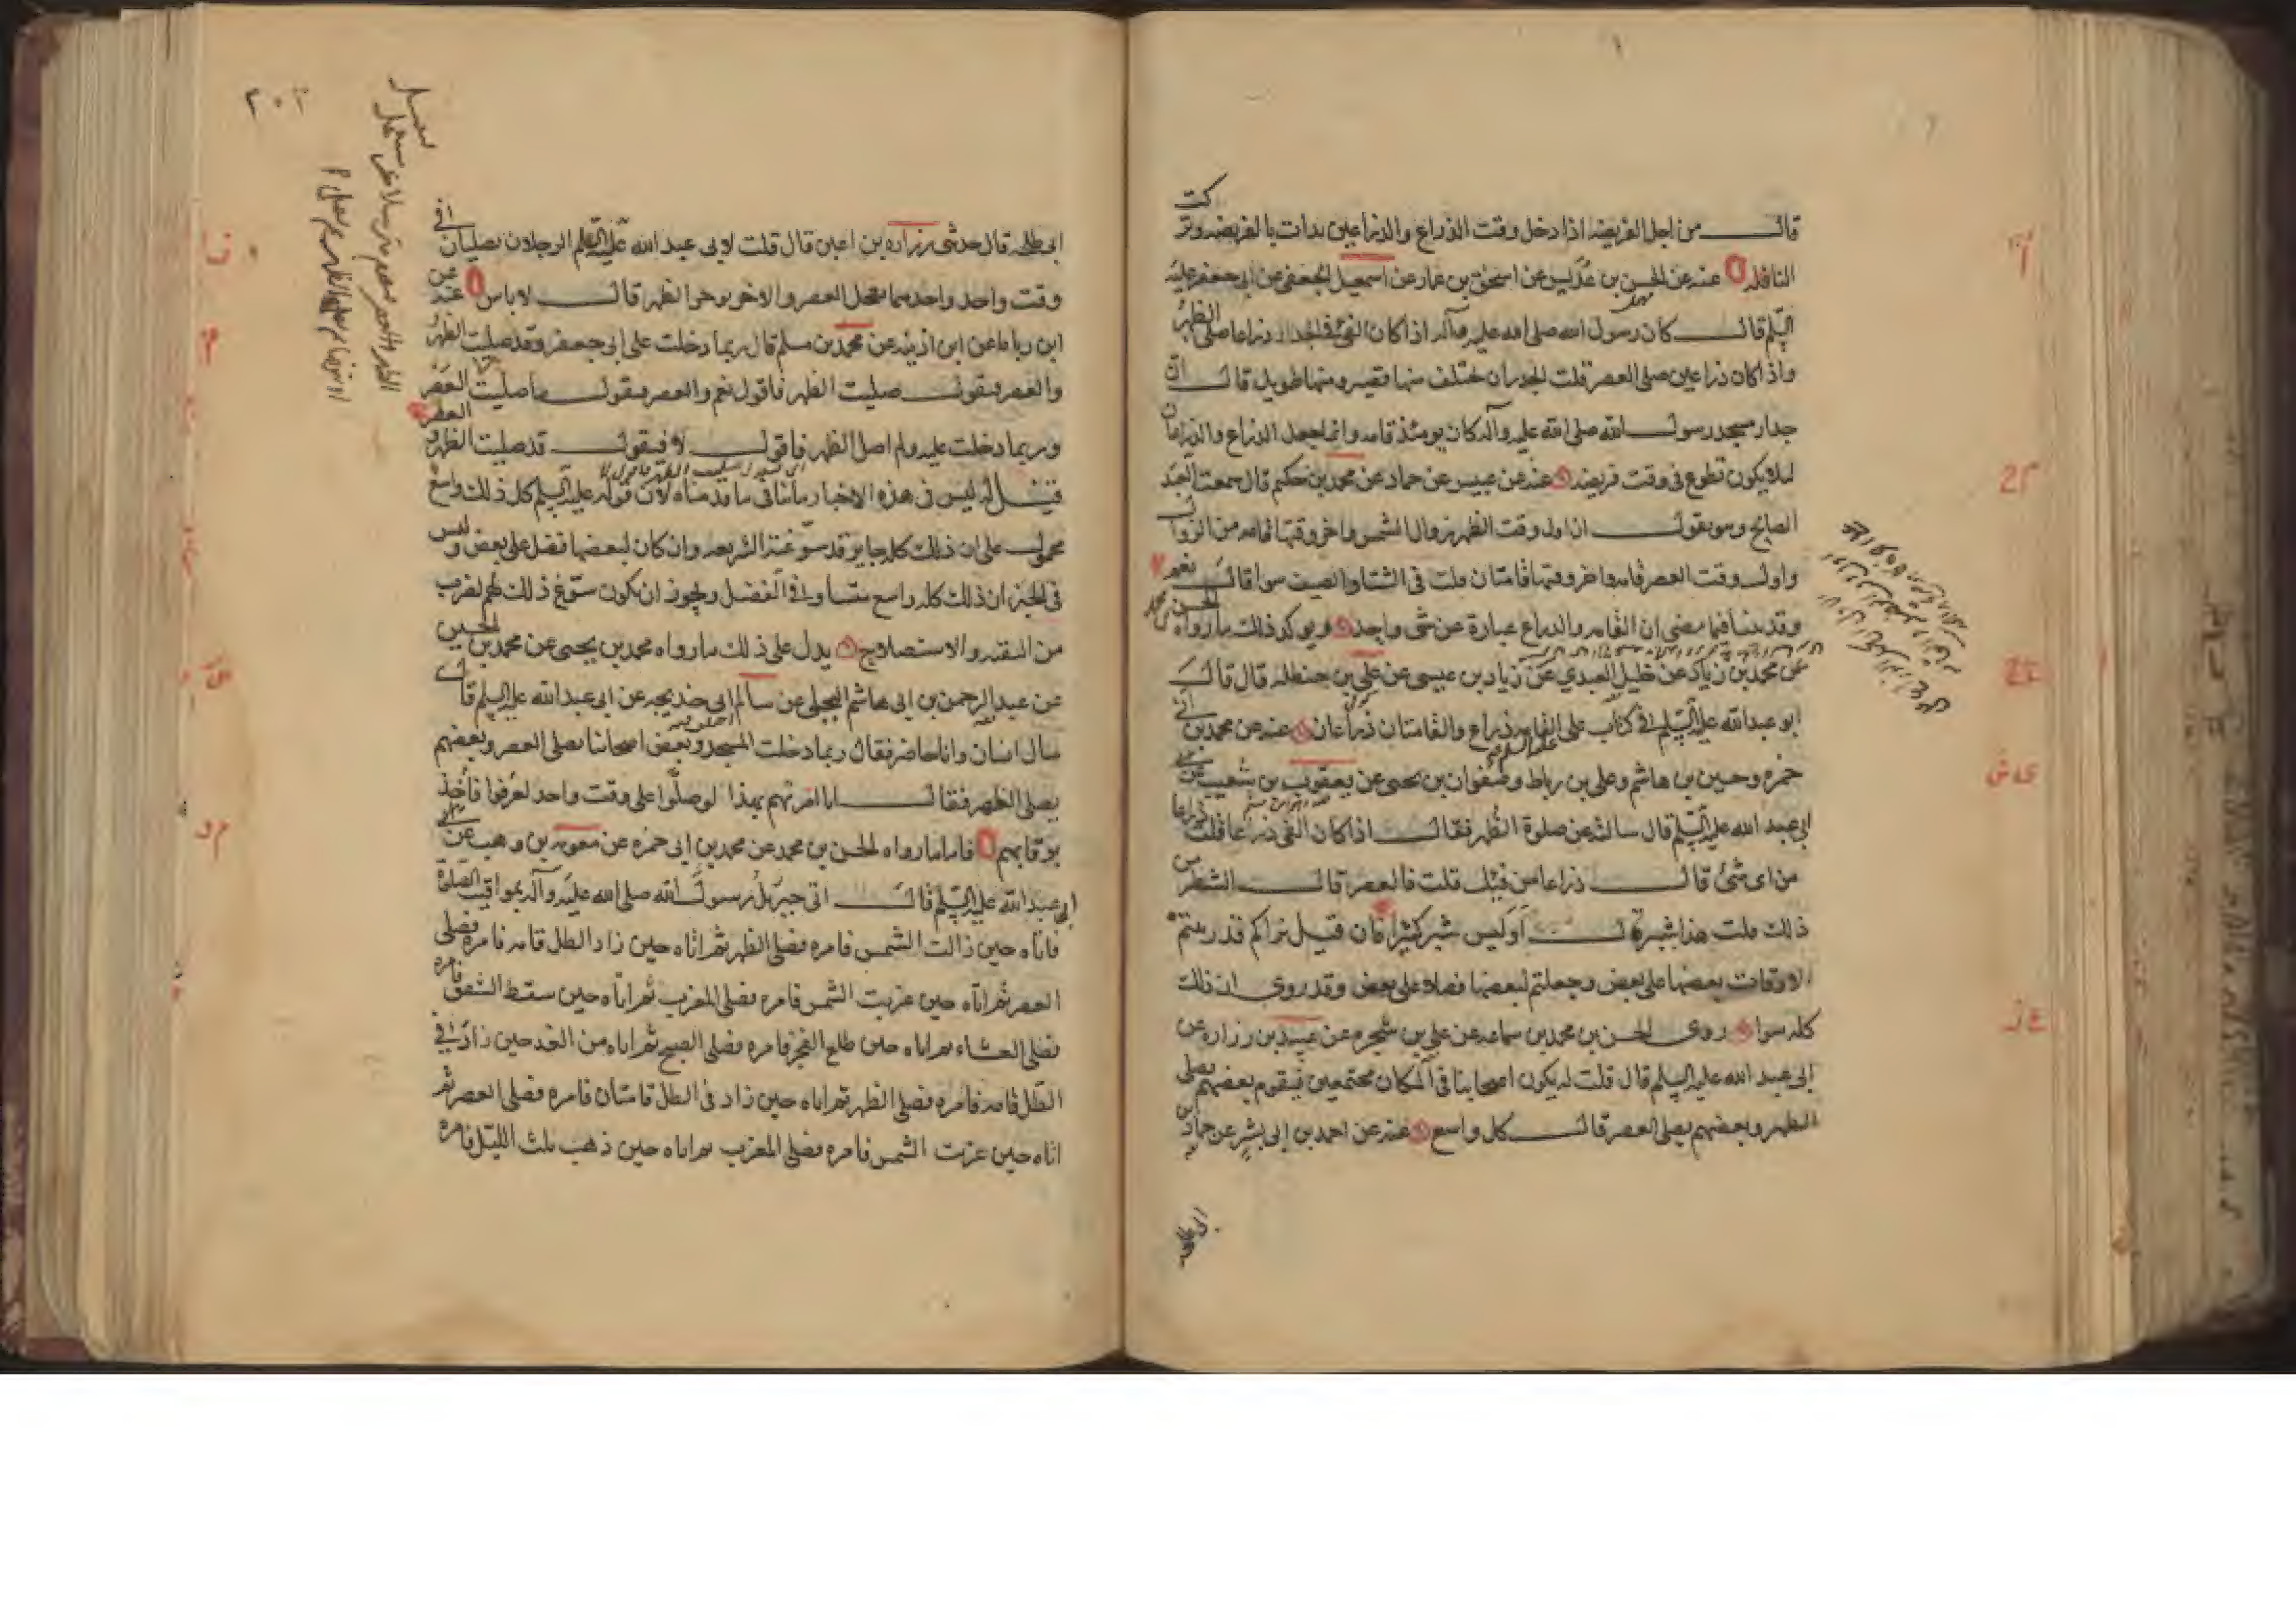 قال من اجل الفريضه اذا دخل وقت الذراع والذراعين بدات بالفريضه وتركت
النافله عنه عن الحسن بن عديس عن اسحق بن عمار عن اسمعيل الجعفى عن ابى جعفر عليه
السلم قال كان رسول الله صلى الله عليه وآله اذا كان الفئ فى الجدار ذراعا صلى الظهر
واذا كان ذراعين صلى العصر قلت الجدران تختلف منها قصير ومنها طويل قال ان
جدار مسجد رسول الله صلى الله عليه وآله كان يومئذ قامه وانما جعل الذراع والذراعان
لئلا يكون تطوع فى وقت فريضه عنه عن عبيس عن حماد عن محمد بن حكيم قال سمعت العبد
الصالح وهو يقول ان اول وقت الظهر زوال الشمس واخر وقتها قامه من الزوال
واول وقت العصر قامه واخر وقتها قامتان قلت فى الشتا والصيف سوا قال نعم
وقد بينا فيما مضى ان القامه والذراع عبارة عن شى واحد ويوكد ذلك ما رواه الحسن
بن محمد بن زياد عن خليل العبدي عن زياد بن عيسى عن على بن حنظله قال قال
ابو عبدالله عليه السلم فى كتاب على القامه ذراع والقامتان ذراعان عنه عن محمد بن ابى
حمزه وحسين بن هاشم وعلى بن رباط وصفوان بن يحيى عن يعقوب بن شعيب عن
ابى عبد الله عليه السلم قال سالته عن صلوة الظهر فقال اذا كان الفى ذراعا قلت
من اى شئ قال ذراعا من فيئك قلت فالعصر قال الشطر من
ذلك قلت هذا شبر قال اوليس شبر كثيرا فان قيل نراكم قد رتبتم
الاوقات بعضها على بعض وجعلتم لبعضها فضلا على بعض وقد روى ان ذلك
كله سوا روى الحسن بن محمد بن سماعه عن على بن شجره عن عبيد بن زراره عن
ابى عبد الله عليه السلم قال قلت له يكون اصحابنا فى المكان مجتمعين فيقوم بعضهم يصلى
الظهر وبعضهم يصلى العصر قال كل واسع عنه عن احمد بن ابى بشر عن حماد بن
ابى طلحه
٢٠٢
ابى طلحه قال حدثنى زراره بن اعين قال قلت لابى عبد الله عليه السلم الرجلان يصليان فى
وقت واحد واحدهما يعجل العصر والاخر يوخر الظهر قال لا باس عنه عن
ابن رباط عن ابن اذينه عن محمد بن مسلم قال ربما دخلت على ابى جعفر وقد صليت الظهر
والعصر فيقول صليت الظهر فاقول نعم والعصر فيقول ما صليت العصر
وربما دخلت عليه ولم اصل الظهر فاقول لا فيقول قد صليت الظهر والعصر
قيل له ليس فى هذه الاخبار ما ينافى ما قدمناه لان قوله عليه السلم كل ذلك واسع
محمول على ان ذلك كله جايز قد سوغته الشريعه وان كان لبعضها فضل على بعض وليس
فى الخبر ان ذلك كله واسع متساو فى الفضل ويجوز ان يكون سوغ ذلك لهم لضرب
من التقيه والاستصلاح يدل على ذلك ما رواه محمد بن يحيى عن محمد بن الحسين
عن عبد الرحمن بن ابى هاشم البجلى عن سالم ابى خديجه عن ابى عبد الله عليه السلم قال
سال انسان وانا حاضر فقال ربما دخلت المسجد وبعض اصحابنا يصلى العصر وبعضهم
يصلى الظهر فقال انا امرتهم بهذا لو صلوا على وقت واحد لعرفوا فاخذ
برقابهم فاما ما رواه الحسن بن محمد عن محمد بن ابى حمزه عن معويه بن وهب عن
ابى عبد الله عليه السلم قال اتى جبرئل رسول الله صلى الله عليه وآله بمواقيت الصلوة
فاتاه حين زالت الشمس فامره فصلى الظهر ثم اتاه حين زاد الظل قامه فامره فصلى
العصر ثم اتاه حين غربت الشمس فامره فصلى المغرب ثم اتاه حين سقط الشفق فامره
فصلى العشاء ثم اتاه حين طلع الفجر فامره فصلى الصبح ثم اتاه من الغد حين زاد فى
الظل قامه فامره فصلى الظهر ثم اتاه حين زاد فى الظل قامتان فامره فصلى العصر ثم
اتاه حين غربت الشمس فامره فصلى المغرب ثم اتاه حين ذهب ثلث الليل فامره